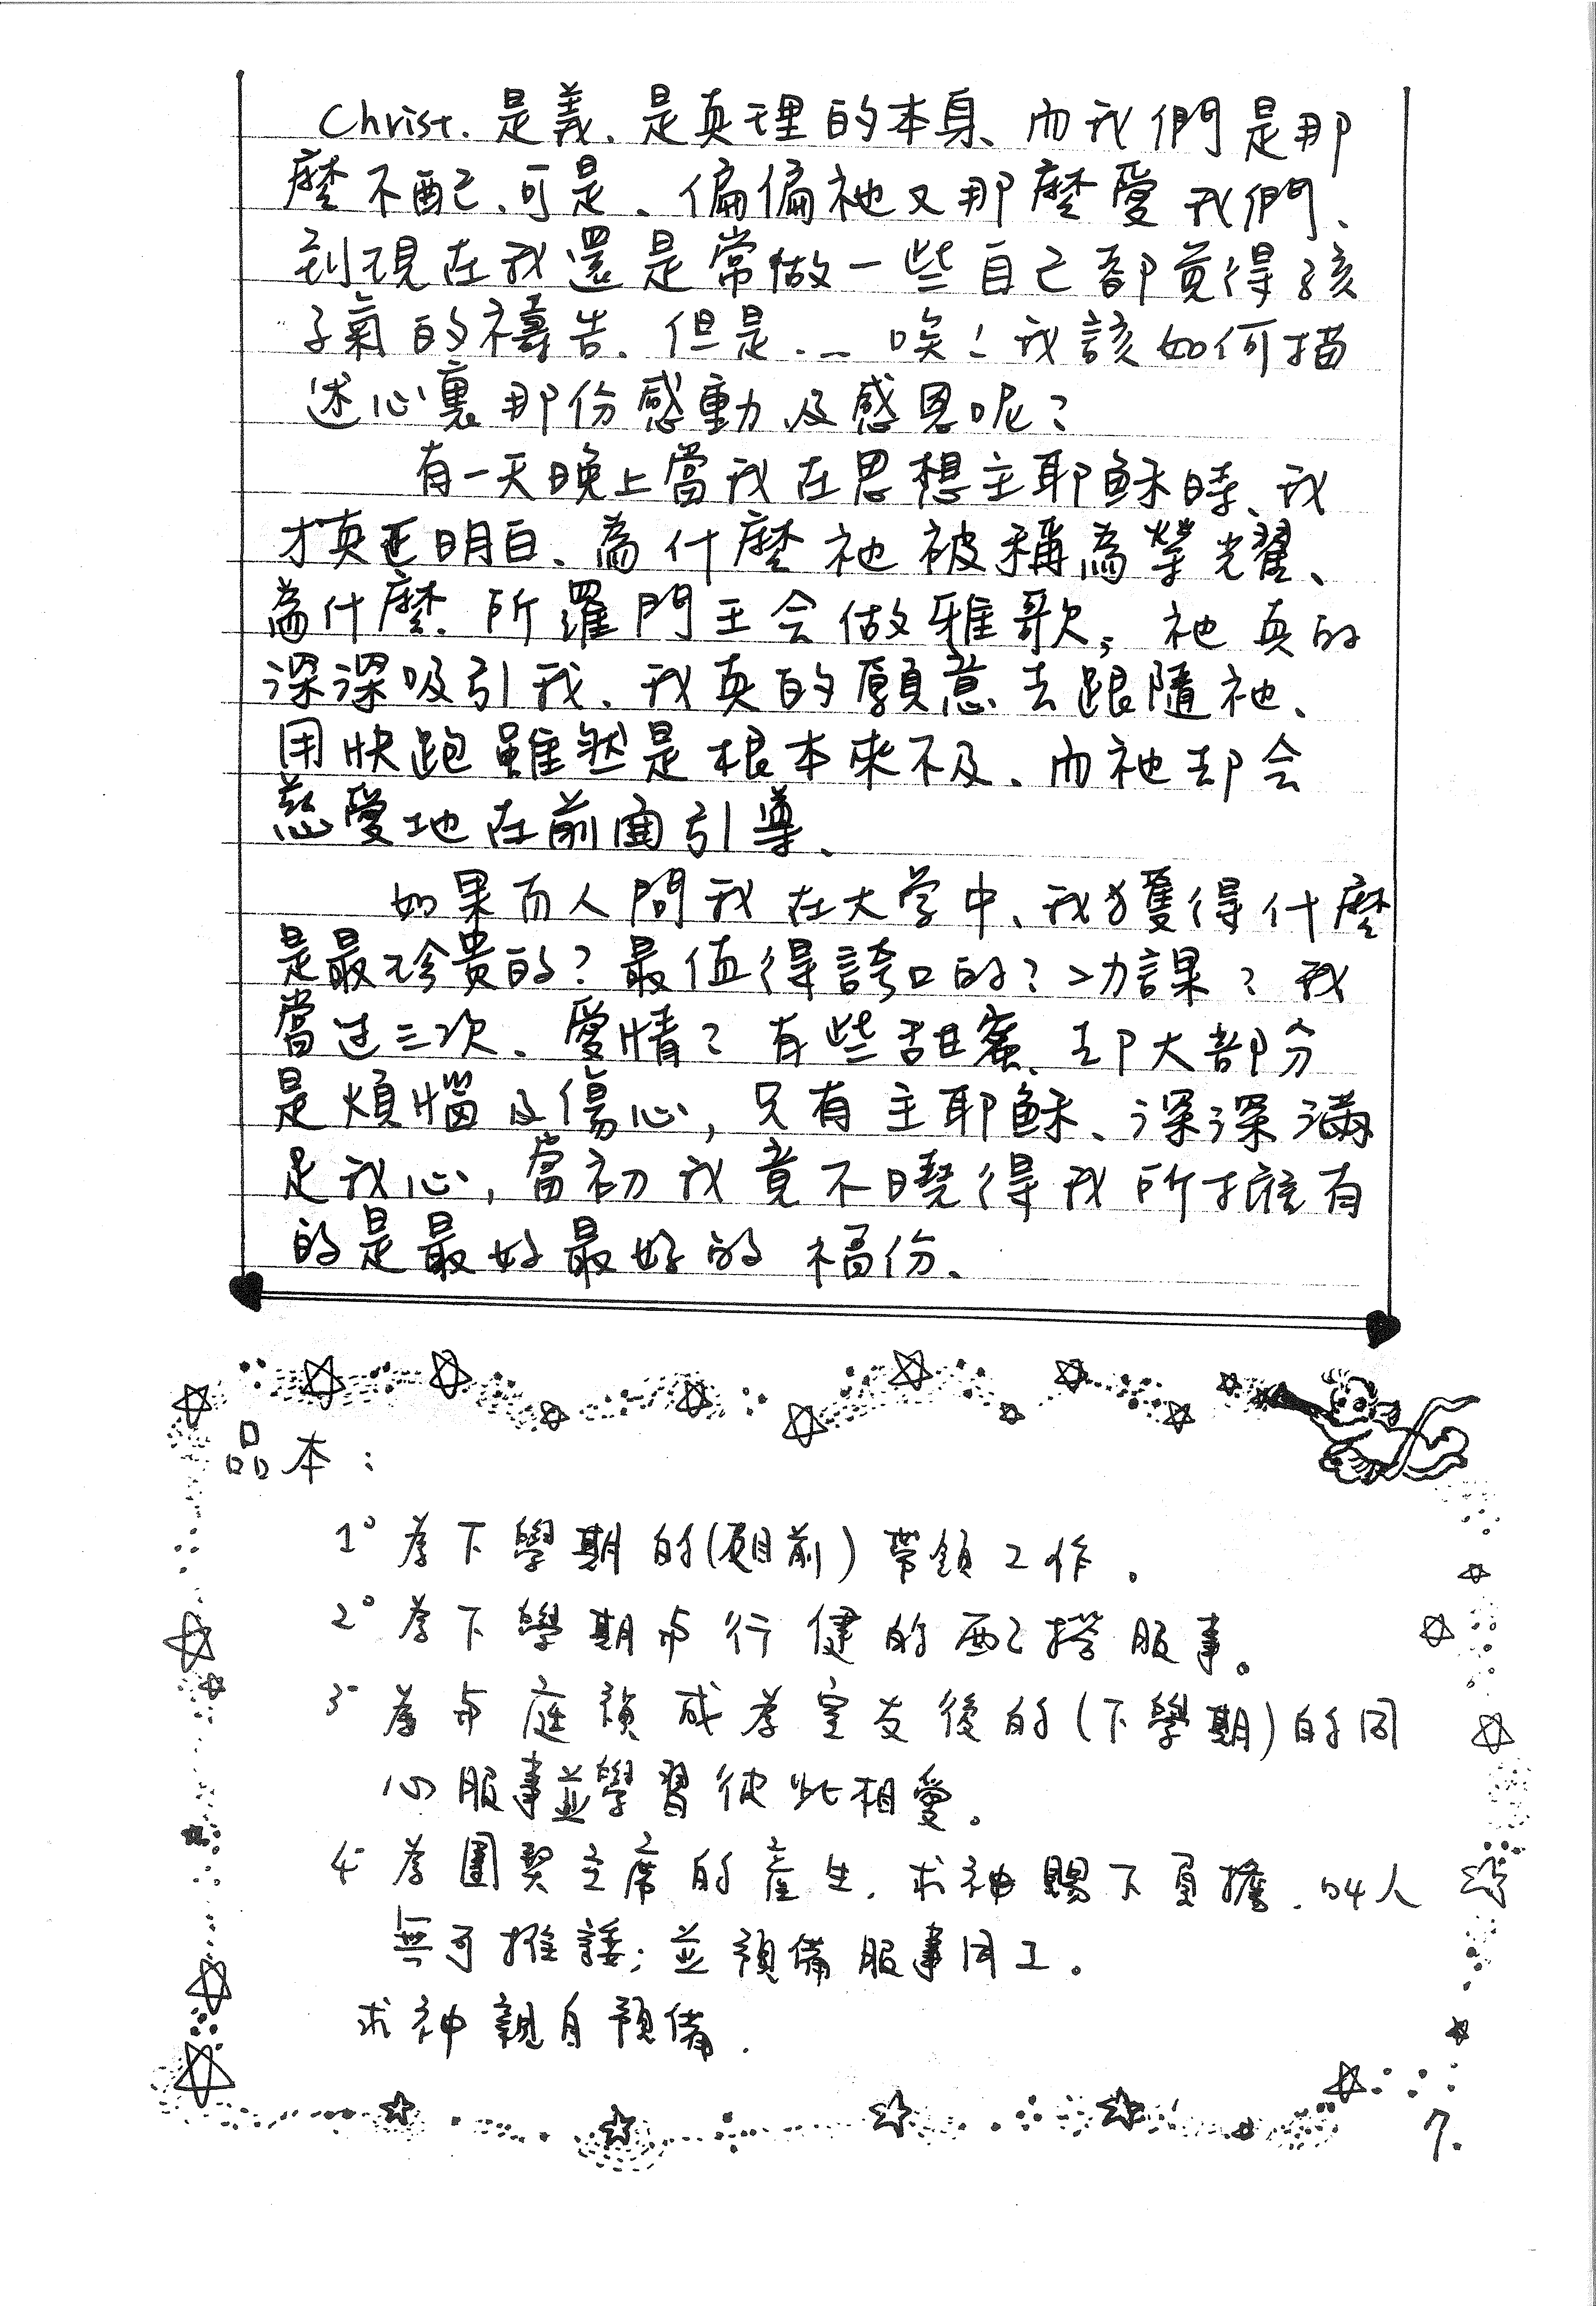 Christ. 是義、是真理的本身、而我們是那
麼不配、可是、偏偏祂又那麼愛我們、
到現在我還是常做一些自己都覺得孩
子氣的禱告、但是... 唉！我該如何描
述心裏那份感動及感恩呢？
有一天晚上當我在思想主耶穌時、我
才真正明白、為什麼祂被稱為榮光耀、
為什麼所羅門王会做雅歌；祂真的
深深吸引我、我真的願意去跟隨祂、
用快跑雖然是根本來不及、而祂却会
慈愛地在前面引導、
如果有人問我在大学中、我獲得什麼
是最珍貴的？最值得誇口的？功課？我
當过三次、愛情？有些甜蜜、却大部分
是煩惱及傷心，只有主耶穌、深深滿
足我心，當初我竟不曉得我所擁有
的是最好最好的福份、
品本：
1° 為下學期的(目前)帶領工作。
2° 為下學期与行健的配搭服事。
3° 為与庭禎成為室友後的(下學期)的同
心服事並學習彼此相愛。
4° 為團契主席的產生、求神賜下負擔、叫人
無可推諉；並預備服事同工。
求神親自預備.
7.